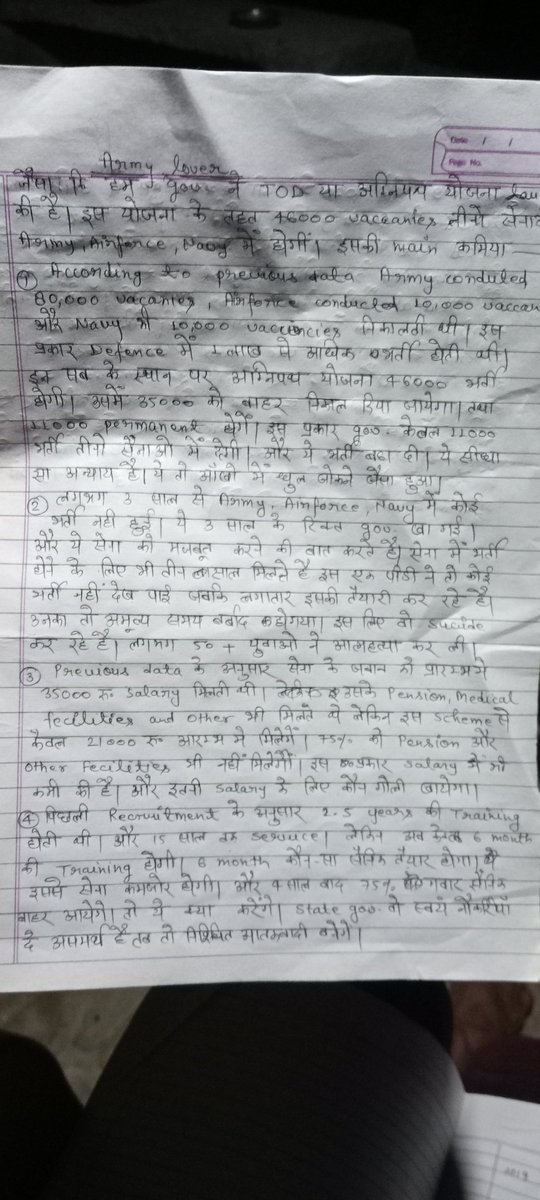 Army lover
Date / /
Page No.
जैसा कि हम gov. ने TOD या अग्निपथ योजना
की है। इस योजना के तहत 46000 vaccanies तीनो सेनाए
Army, Airforce, Navy में होगीं। इसकी main कमिया
① According to previous data Army conducted
80,000 vacanies, Airforce conducted 10,000 vaccan
और Navy भी 10,000 vaccincies निकालती थी। इस
प्रकार Defence में 1 लाख से अधिक भर्ती होती थी।
इन सब के स्थान पर अग्निपथ योजना 46000 भर्ती
होगी। उसमें 35000 को बाहर निकाल दिया जायेगा। तथा
11000 permanant होगें। इस प्रकार gov. केवल 11000
भर्ती तीनो सेनाओ में देगी। और ये भर्ती बढा दी। ये सीधा
सा अन्याय है। ये तो आँखो में धुल झोकने जैसा हुआ।
② लगभग 3 साल से Army, Airforce, Navy में कोई
भर्ती नही हुई। ये 3 साल के रिक्त gov. खा गई।
और ये सेना को मजबूत करने की बात करते है। सेना में भर्ती
होने के लिए भी तीन साल मिलते है इस एक पीढी ने तो कोई
भर्ती नहीं देख पाई जबकि लगातार इसकी तैयारी कर रहे है।
उनका तो अमूल्य समय बर्बाद हो गया। इस लिए वो sucide
कर रहे है। लगभग 50 + युवाओ ने आत्महत्या कर ली।
③ Previous data के अनुसार सेना के जवान को प्रारम्भ मे
35000 रू salary मिलती थी। लेकिन उसके Pension, Medical
fecilities and other भी मिलते थे लेकिन इस scheme से
केवल 21000 रू आरम्भ मे मिलेगें। 75% को Pension और
other Fecilities भी नहीं मिलेगीं। इस प्रकार salary में भी
कमी की है। और इतनी salary के लिए कौन गोली खायेगा।
④ पिछली Recruitment के अनुसार 2.5 years की Training
होती थी। और 15 साल तक service। लेकिन अब केवल 6 month
की Training होगी। 6 month कौन-सा सैनिक तैयार होगा।
इससे सेना कमजोर होगी। और 4 साल बाद 75% सैनिक
बाहर आयेगे। तो ये क्या करेंगे। State gov. तो स्वयं नौकरीयाँ
दे असमर्थ है तब तो निश्चित आतंकवादी बनेगे।
2019